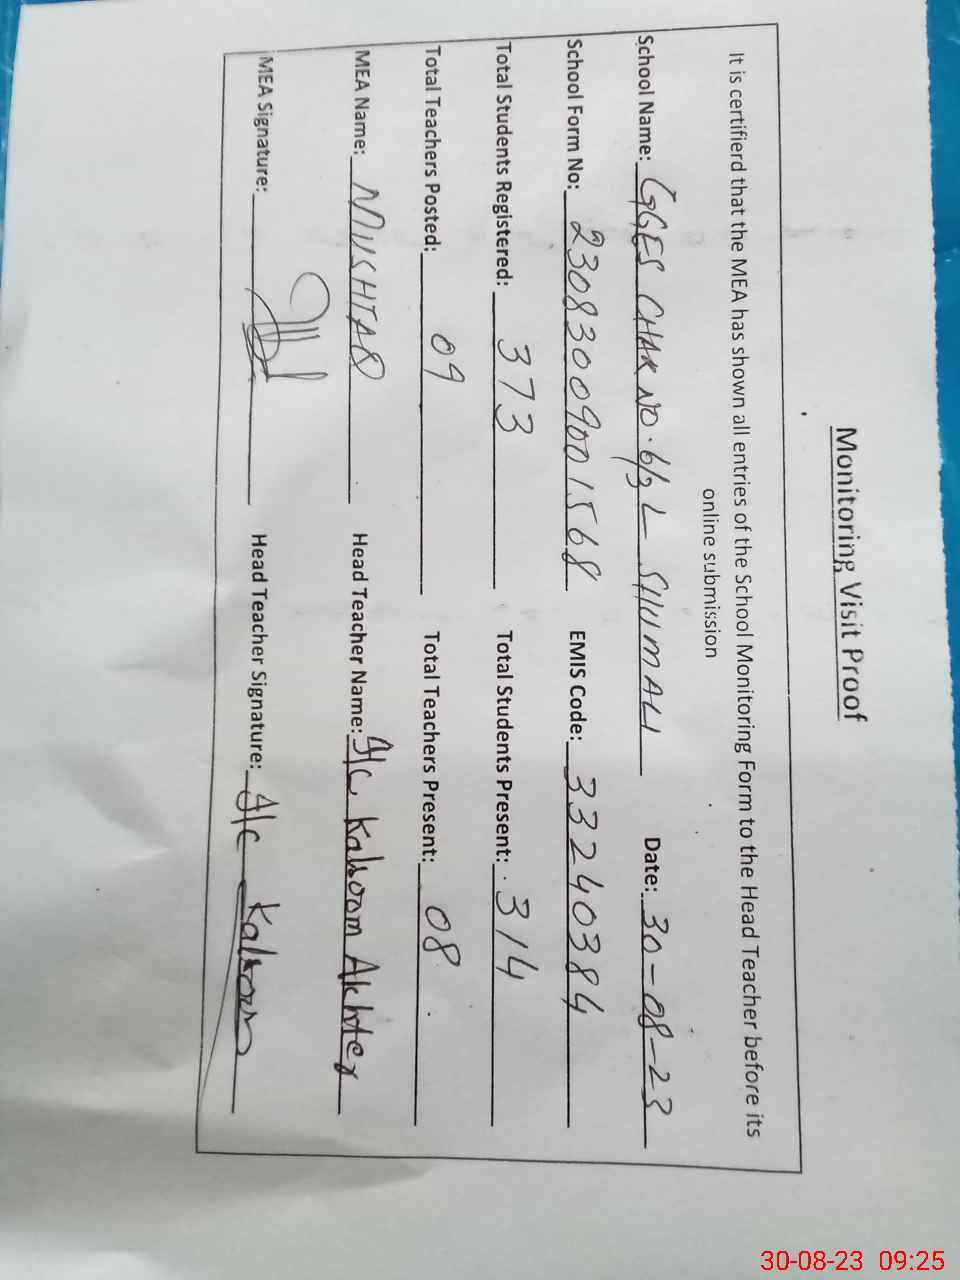 Monitoring Visit Proof
It is certifierd that the MEA has shown all entries of the School Monitoring Form to the Head Teacher before its
online submission
School Name: GGES CHAK NO. 6/3 L SHUMALI Date: 30-08-23
School Form No: 23083009001568 EMIS Code: 33240384
Total Students Registered: 373 Total Students Present: 314
Total Teachers Posted: 09 Total Teachers Present: 08
MEA Name: MUSHTAQ Head Teacher Name: I/c Kalsoom Akhter
MEA Signature: Head Teacher Signature: I/c Kalsoom
30-08-23 09:25